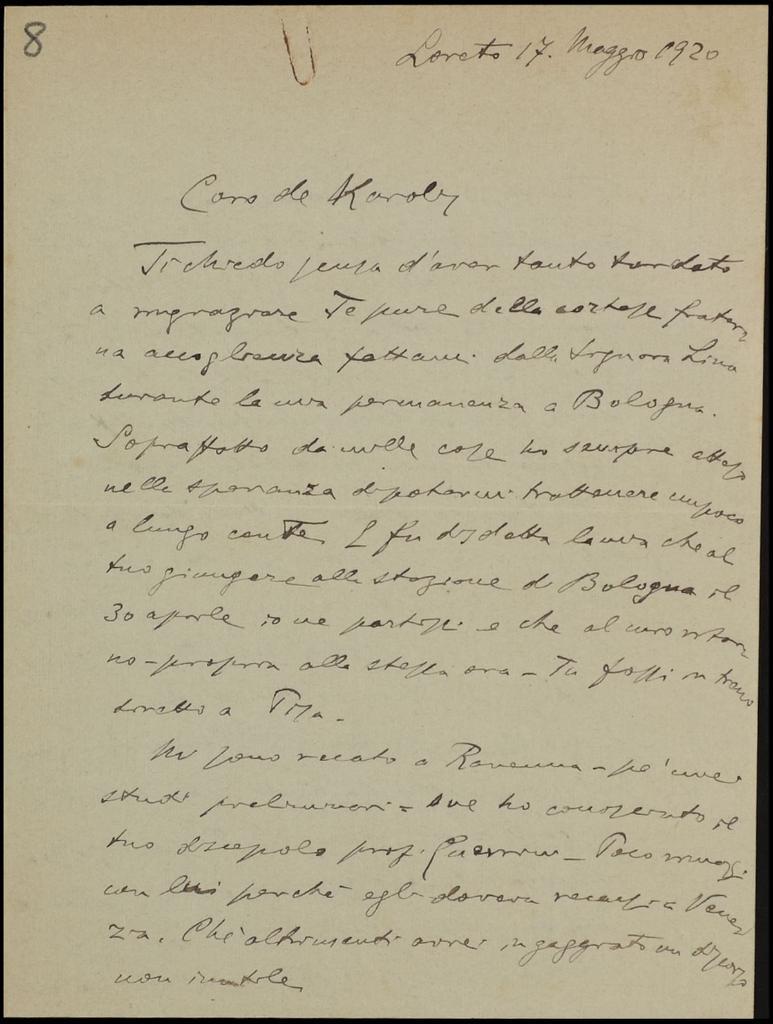 8
Loreto 17. Maggio 1920
Caro de Karoly
Ti chiedo scusa d'aver tanto tardato
a ringraziare Te pure della cortese frater
na accoglienza fattami dalla Signora Lina
durante la mia permanenza a Bologna.
Sopraffatto da mille cose ho sempre atteso
nella speranza di potermi trattenere un poco
a lungo con Te. E fu disdetta la mia che al
tuo giungere alla stazione di Bologna il
30 aprile io ne partissi e che al mio ritor
no - propria alla stessa ora - Tu fossi in treno
diretto a Pisa.
Mi sono recato a Ravenna - pe' miei
studi preliminari - ove ho conosciuto il
tuo discepolo prof. Guerrini - Poco rimasi
con lui perchè egli doveva recarsi a Vene
zia. Chè altrimenti avrei ingaggiato un discorso
non inutile